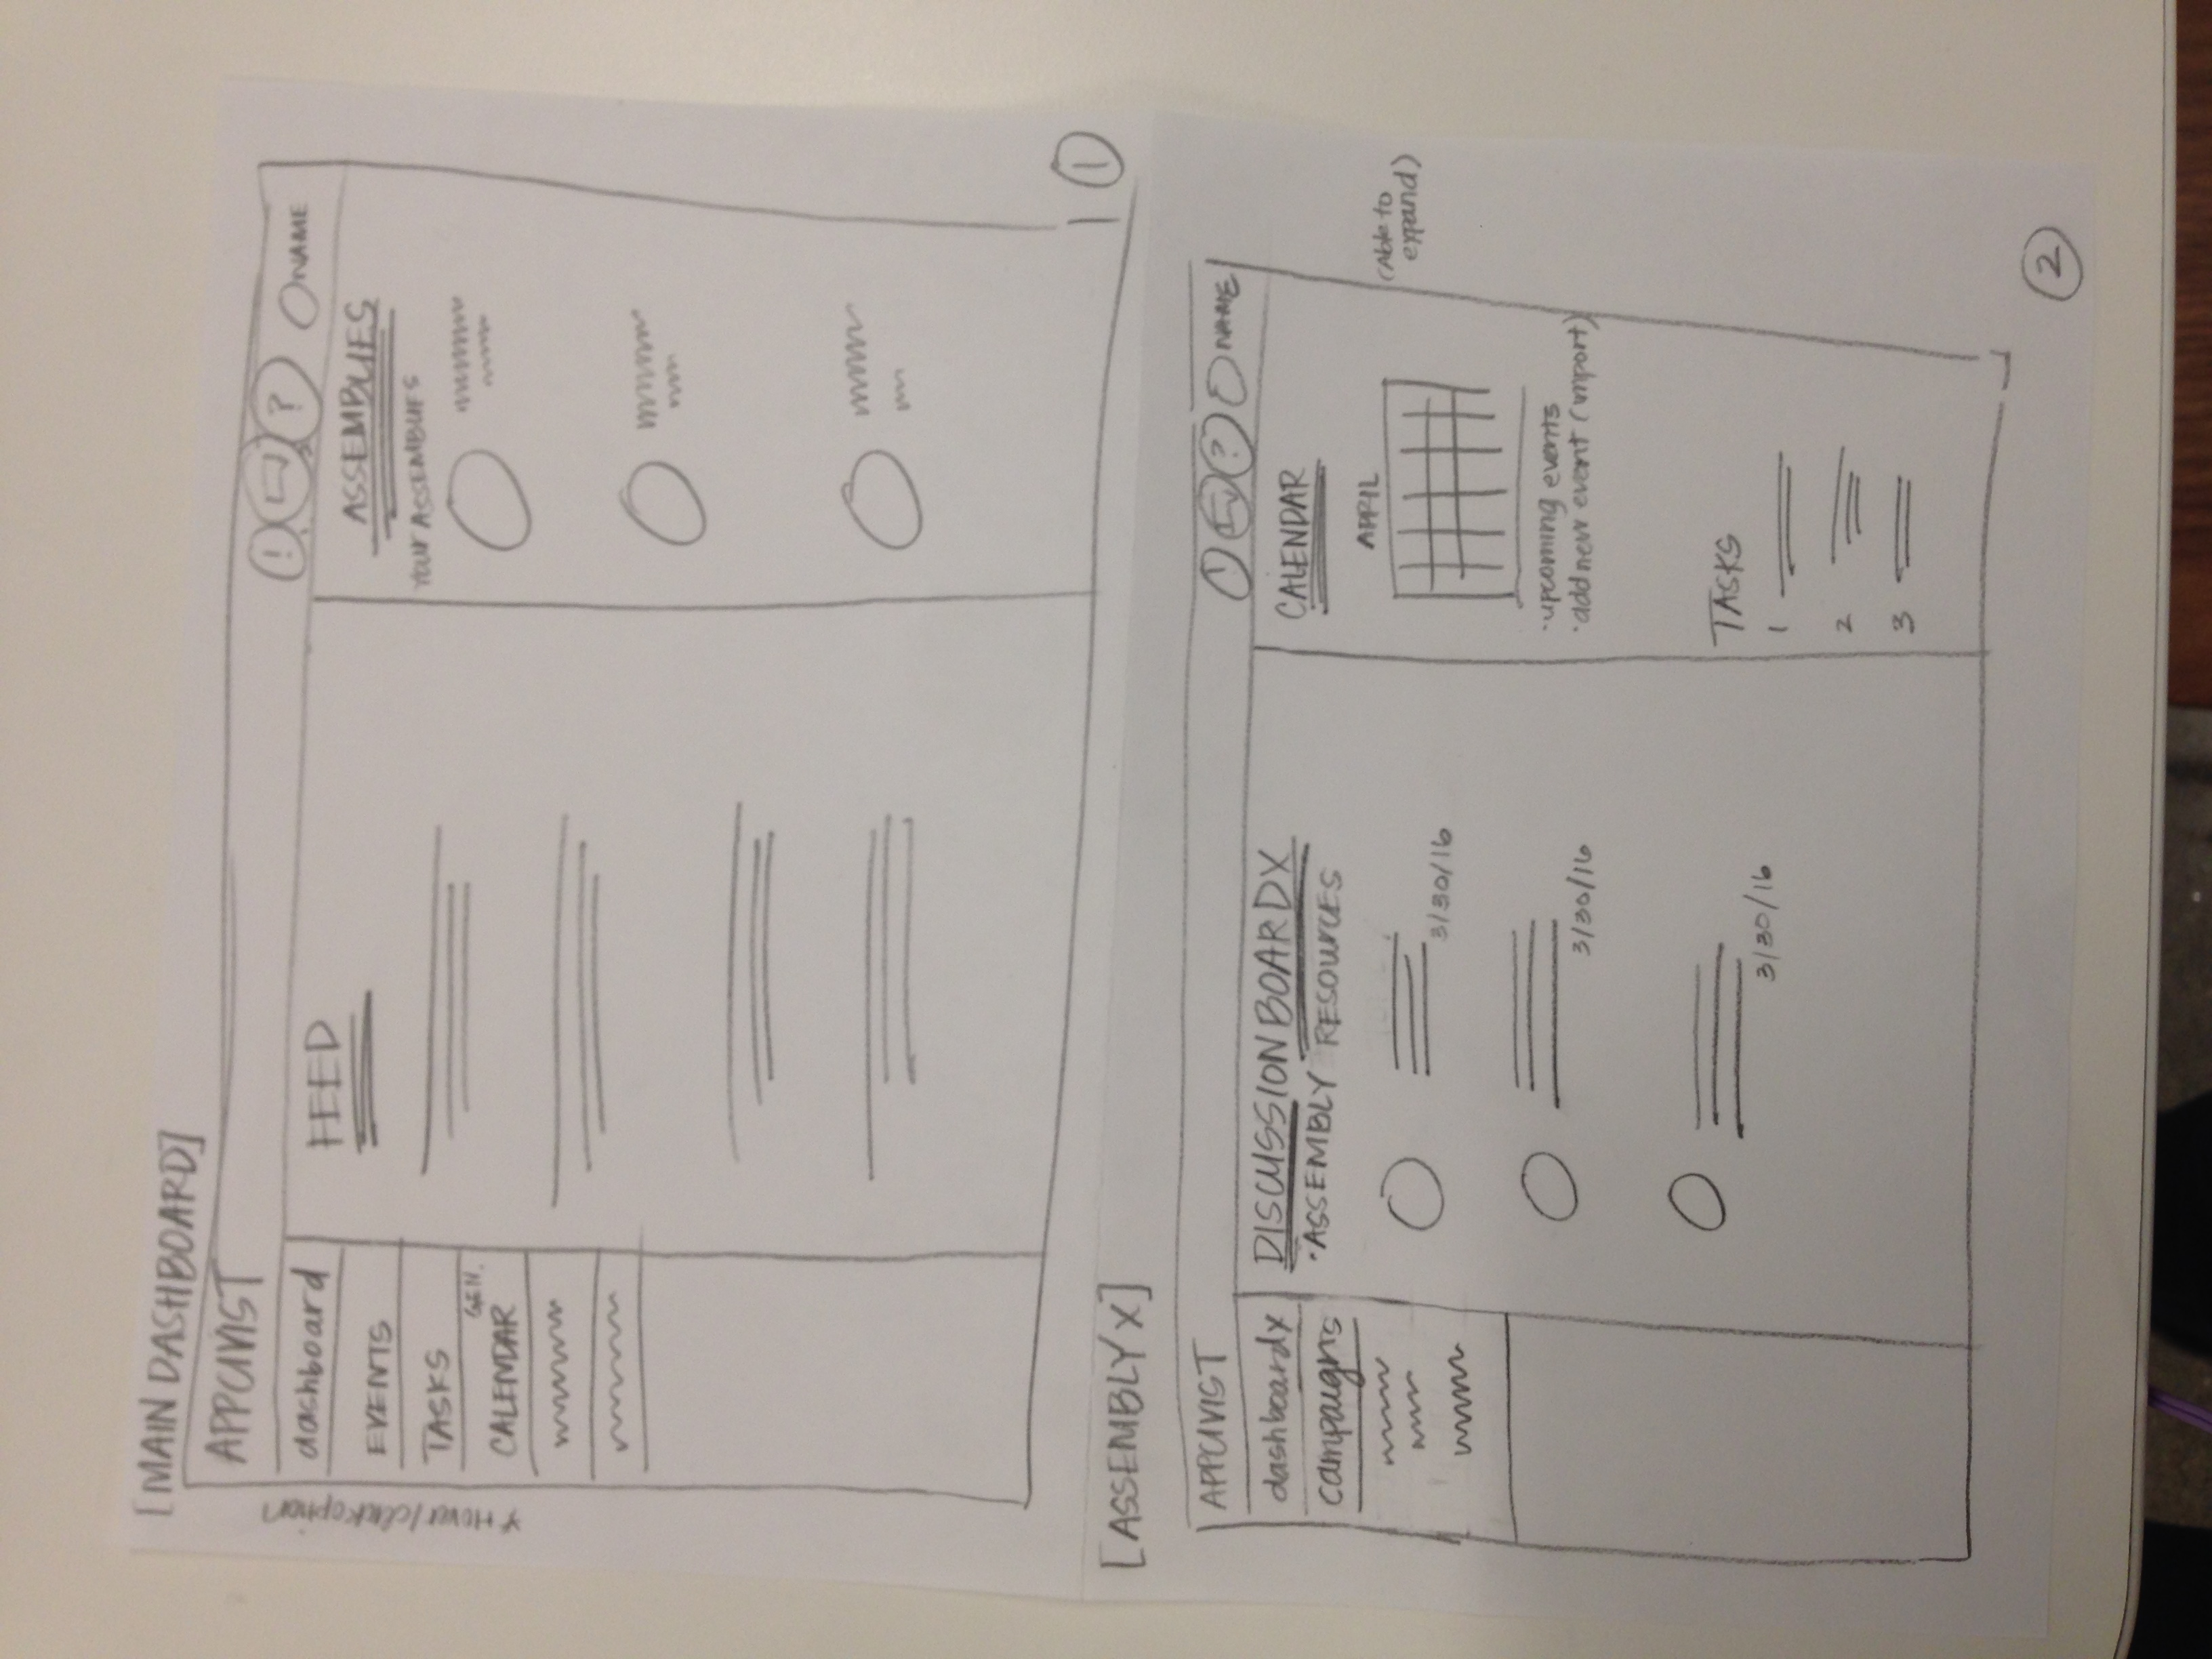 [MAIN DASHBOARD]
APPCIVIST
! ? NAME
* Hover/click option
dashboard
EVENTS
TASKS
GEN.
CALENDAR
FEED
ASSEMBLIES
YOUR ASSEMBLIES
1
[ASSEMBLY X]
APPCIVIST
! ? NAME
dashboard x
campaigns
DISCUSSION BOARD X
· ASSEMBLY RESOURCES
3/30/16
3/30/16
3/30/16
CALENDAR
APRIL
(Able to
expand)
· upcoming events
· add new event (import)
TASKS
1
2
3
2